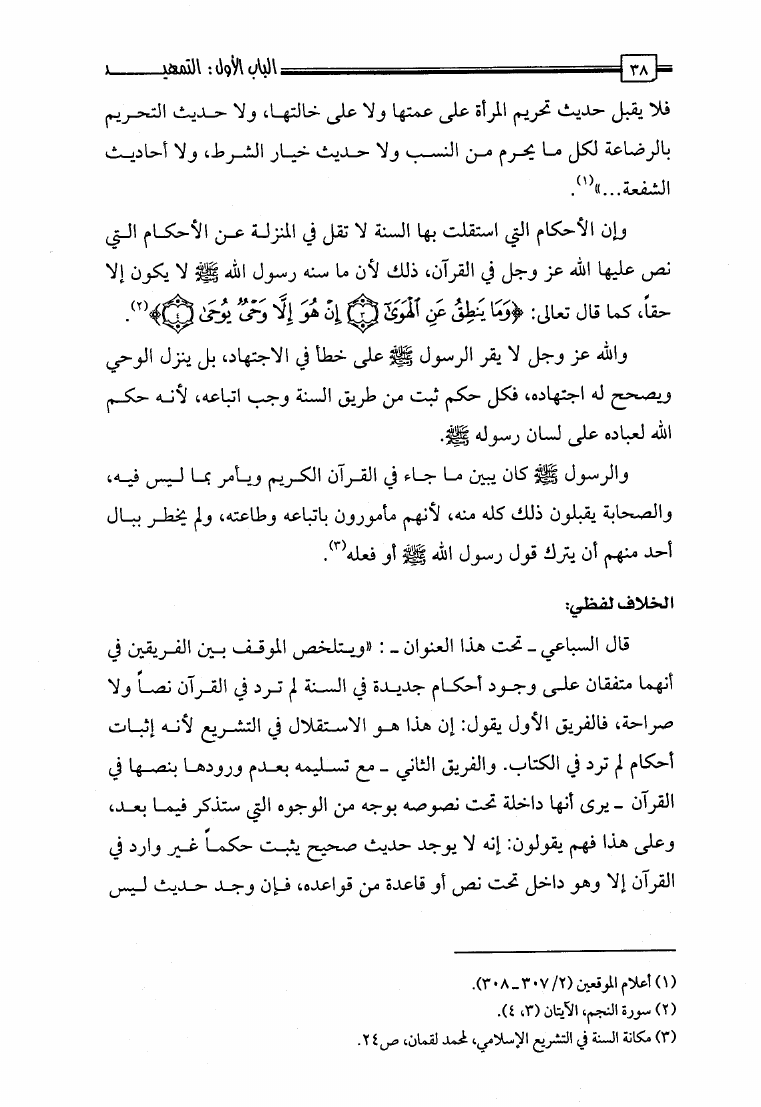 ٣٨ الباب الأول: التمهيـــــــد
فلا يقبل حديث تحريم المرأة على عمتها ولا على خالتهـا، ولا حـديث التحـريم
بالرضاعة لكل مـا يحـرم مـن النسب ولا حـديث خيـار الشـرط، ولا أحاديـث
الشفعة...»(١).
وإن الأحكام التي استقلت بها السنة لا تقل في المنزلـة عـن الأحكـام الـتي
نص عليها الله عز وجل في القرآن، ذلك لأن ما سنه رسول الله ﷺ لا يكون إلا
حقاً، كما قال تعالى: ﴿وَمَا يَنطِقُ عَنِ ٱلْهَوَىٰٓ ۝٣ إِنْ هُوَ إِلَّا وَحْىٌ يُوحَىٰ ۝٤﴾(٢).
والله عز وجل لا يقر الرسول ﷺ على خطأ في الاجتهاد، بل ينزل الوحي
ويصحح له اجتهاده، فكل حكم ثبت من طريق السنة وجب اتباعه، لأنـه حكـم
الله لعباده على لسان رسوله ﷺ.
والرسول ﷺ كان يبين مـا جـاء في القـرآن الكـريم ويـأمر بمـا لـيس فيـه،
والصحابة يقبلون ذلك كله منه، لأنهم مأمورون باتباعه وطاعته، ولم يخطـر ببـال
أحد منهم أن يترك قول رسول الله ﷺ أو فعله(٣).
الخلاف لفظي:
قال السباعي ـ تحت هذا العنوان ـ : «ويـتلخص الموقـف بـين الفـريقين في
أنهما متفقان علـى وجـود أحكـام جديـدة في السنة لم تـرد في القـرآن نصـاً ولا
صراحة، فالفريق الأول يقول: إن هذا هـو الاسـتقلال في التشـريع لأنـه إثبـات
أحكام لم ترد في الكتاب. والفريق الثاني ـ مع تسـليمه بعـدم ورودهـا بنصـها في
القرآن ـ يرى أنها داخلة تحت نصوصه بوجه من الوجوه التي ستذكر فيمـا بعـد،
وعلى هذا فهم يقولون: إنه لا يوجد حديث صحيح يثبـت حكمـاً غـير وارد في
القرآن إلا وهو داخل تحت نص أو قاعدة من قواعده، فـإن وجـد حـديث لـيس
(١) أعلام الموقعين (٢/ ٣٠٧ ـ ٣٠٨).
(٢) سورة النجم، الآيتان (٣، ٤).
(٣) مكانة السنة في التشريع الإسلامي، لمحمد لقمان، ص٢٤.